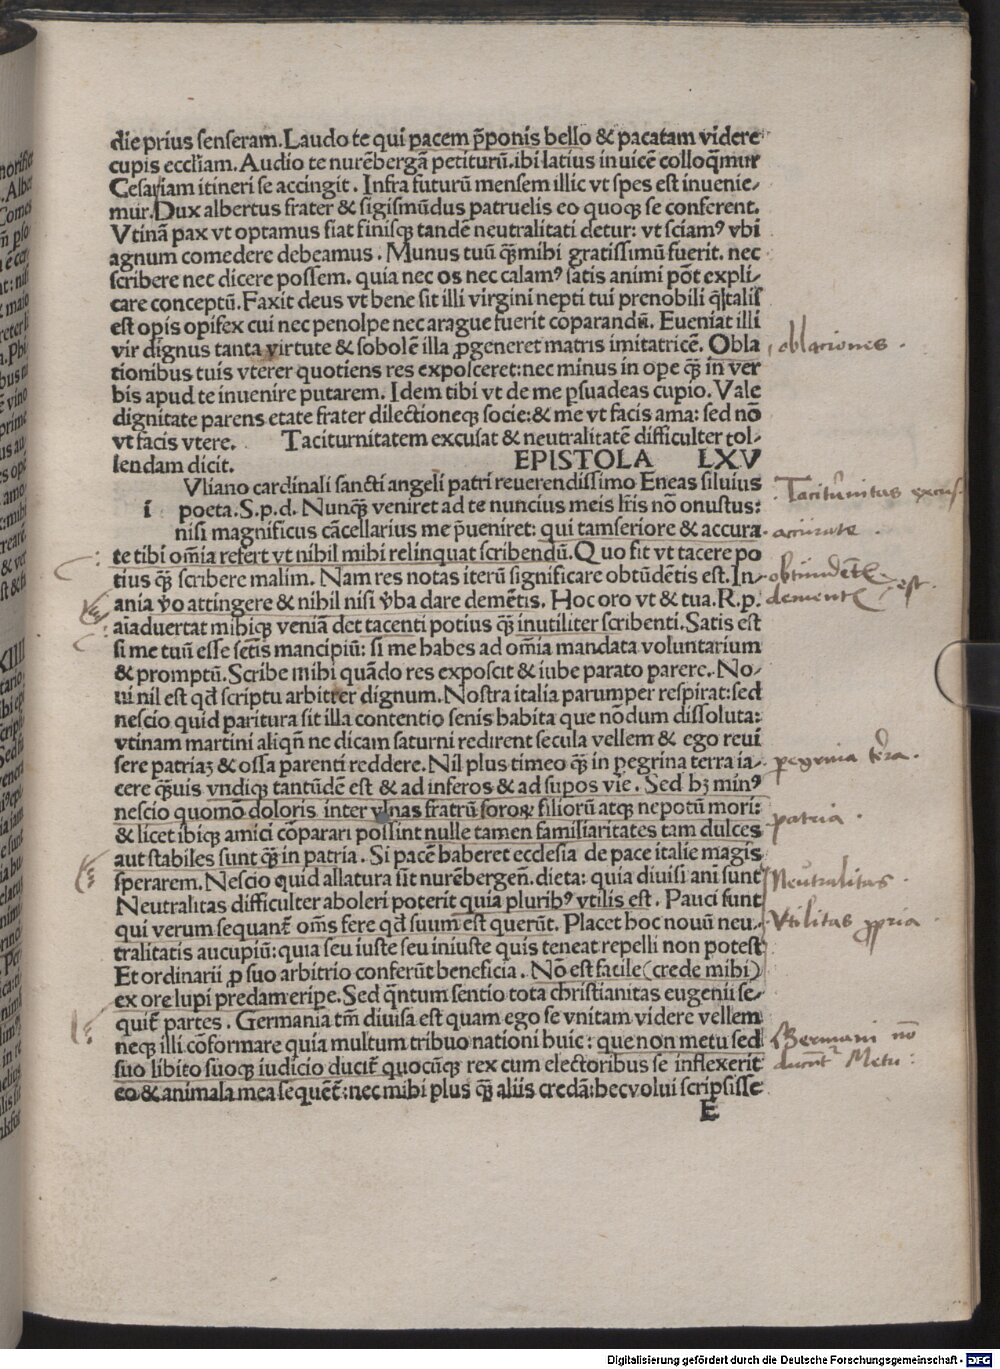 die prius senseram. Laudo te qui pacem p̄ponis bello & pacatam videre
cupis eccl̄iam. Audio te nurēbergā petiturū. ibi latius inuicē colloq̄mur
Cesariam itineri se accingit. Infra futurū mensem illic vt spes est inuenie-
mur. Dux albertus frater & sigismūdus patruelis eo quoqꝫ se conferent.
Vtinā pax vt optamus fiat finisqꝫ tandē neutralitati detur: vt sciamꝰ vbi
agnum comedere debeamus. Munus tuū qꝫ̄ mihi gratissimū fuerit. nec
scribere nec dicere possem. quia nec os nec calamꝰ satis animi pōt expli-
care conceptū. Faxit deus vt bene sit illi virgini nepti tui prenobili
est opis opifex cui nec penolpe nec arague fuerit coparandū. Eueniat illi
vir dignus tanta virtute & sobolē illa ꝓgeneret matris imitatricē. Obla
tionibus tuis vterer quotiens res exposceret: nec minus in ope qꝫ̄ in ver
bis apud te inuenire putarem. Idem tibi vt de me ꝑsuadeas cupio. Vale
dignitate parens etate frater dilectioneqꝫ socie: & me vt facis ama: sed nō
vt facis vtere. Taciturnitatem excusat & neutralitatē difficulter tol-
lendam dicit. EPISTOLA LXV
Vliano cardinali sancti angeli patri reuerendissimo Eneas siluius
i poeta. S.p.d. Nunqꝫ̄ veniret ad te nuncius meis lr̄is nō onustus:
nisi magnificus cācellarius me p̄ueniret: qui tamseriore & accura
te tibi om̄ia refert vt nibil mibi relinquat scribendū. Quo fit vt tacere po
tius qꝫ̄ scribere malim. Nam res notas iterū significare obtūdētis est. In-
ania v̄o attingere & nihil nisi v̄ba dare demētis. Hoc oro vt & tua. R.p.
aīaduertat mihiqꝫ veniā det tacenti potius qꝫ̄ inutiliter scribenti. Satis est
si me tuū esse sētis mancipiū: si me habes ad om̄ia mandata voluntarium
& promptū. Scribe mihi quādo res exposcit & iube parato parere. No-
ui nil est qd̄ scriptu arbitrer dignum. Nostra italia parumper respirat: sed
nescio quid paritura sit illa contentio senis habita que nōdum dissoluta:
vtinam martini aliqn̄ ne dicam saturni redirent secula vellem & ego reui
sere patriaꝫ & ossa parenti reddere. Nil plus timeo qꝫ̄ in ꝑegrina terra ia-
cere qꝫ̄uis vndiqꝫ tantūdē est & ad inferos & ad supos vie. Sed hꝫ minꝰ
nescio quomō doloris inter vlnas fratrū soroꝝ filiorū atqꝫ nepotū mori:
& licet ibiqꝫ amici cōparari possint nulle tamen familiaritates tam dulces
aut stabiles sunt qꝫ̄ in patria. Si pacē haberet ecclesia de pace italie magis
sperarem. Nescio quid allatura sit nurēbergen̄. dieta: quia diuisi ani sunt
Neutralitas difficulter aboleri poterit quia pluribꝰ vtilis est. Pauci sunt
qui verum sequant̄ om̄s fere qd̄ suum est querūt. Placet hoc nouū neu-
tralitatis aucupiū: quia seu iuste seu iniuste quis teneat repelli non potest
Et ordinarii ꝓ suo arbitrio conferūt beneficia. Nō est facile (crede mihi)
ex ore lupi predam eripe. Sed q̄ntum sentio tota christianitas eugenii se-
quit̄ partes. Germania tm̄ diuisa est quam ego se vnitam videre vellem
neqꝫ illi cōformare quia multum tribuo nationi huic: que non metu sed
suo libito suoqꝫ iudicio ducit̄ quocūqꝫ rex cum electoribus se inflexerit
eo & animala mea sequet̄: nec mihi plus qꝫ̄ aliis credā: hec volui scripsisse
E
oblationes.
Taciturnitas excus
accurate.
obtundētis
dementis est.
peregrina terra.
patria.
Neutralitas.
Vtilitas ꝓpria
Germani nō
ducunt̄ Metu:
Digitalisierung gefördert durch die Deutsche Forschungsgemeinschaft - DFG